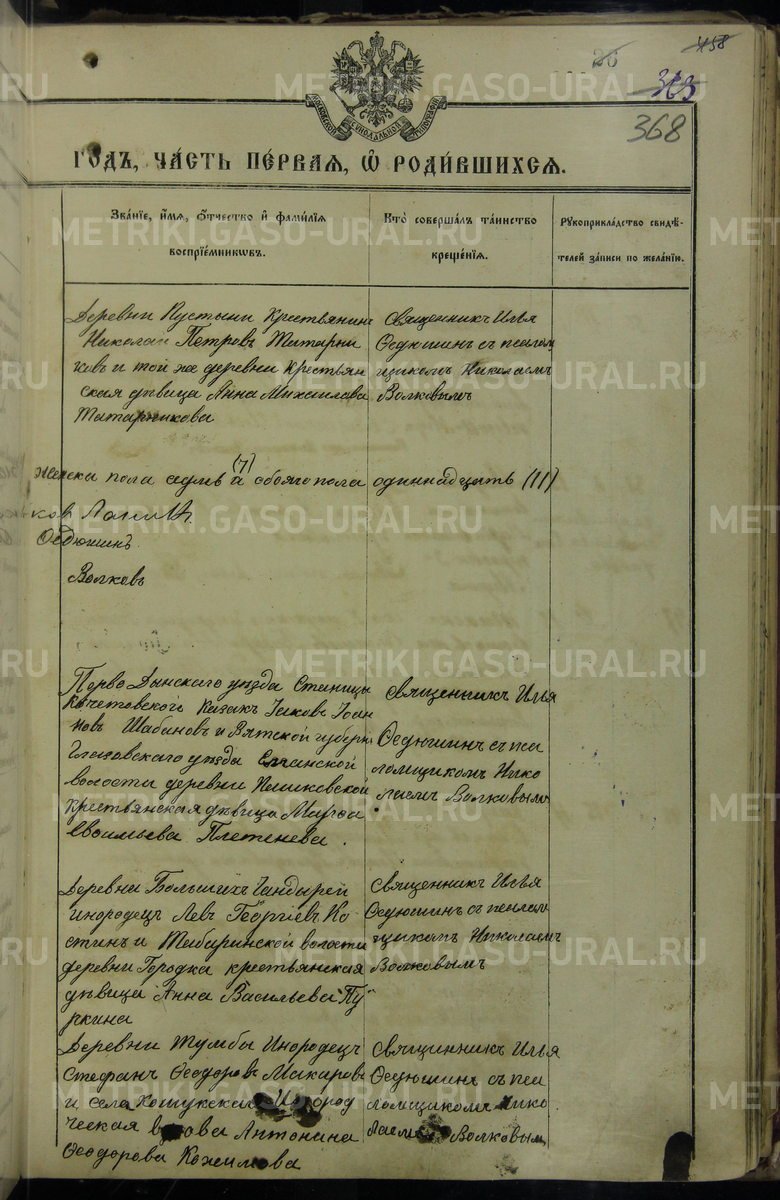 26
458
363
368
МОСКОВСКОЙ СѴНОДАЛЬНОЙ ТИПОГРАФІИ
ГОДЪ, ЧАСТЬ ПЕРВАЯ, Ѡ РОДИВШИХСЯ.
Званіе, имя, отчество и фамилія воспріемниковъ.
Кто совершалъ таинство крещенія.
Рукоприкладство свидѣтелей записи по желанію.
Деревни Пустыни Крестьянинъ
Николай Петровъ Татарни
ковъ и той же деревни крестьян
ская дѣвица Анна Михаилова
Татарникова
Священникъ Илья
Ѳедюшинъ съ псалом
щикомъ Николаемъ
Волковымъ
женска пола седмь (7) а обоего пола одиннадцать (11)
Ѳедюшинъ
Волковъ
уѣзда Станицы
Кочетовской Казакъ Іаковъ Іоан
новъ Шабановъ и Вятской губерн
Глазовскаго уѣзда
волости деревни
крестьянская дѣвица
Плетенева.
Священникъ Илья
Ѳедюшинъ съ пса
ломщикомъ Нико
лаемъ Волковымъ
Деревни Большихъ
инородецъ Левъ Георгіевъ Ко
стинъ и волости
деревни Городка крестьянская
дѣвица Анна Васильева Пу
ркина
Священникъ Илья
Ѳедюшинъ съ псалом
щикомъ Николаемъ
Волковымъ
Деревни Тумбы Инородецъ
Стефанъ Ѳеодоровъ Макаровъ
и села
ческая вдова Антонина
Ѳеодорова
Священникъ Илья
Ѳедюшинъ съ пса
ломщикомъ Нико
лаемъ Волковым
METRIKI.GASO-URAL.RU